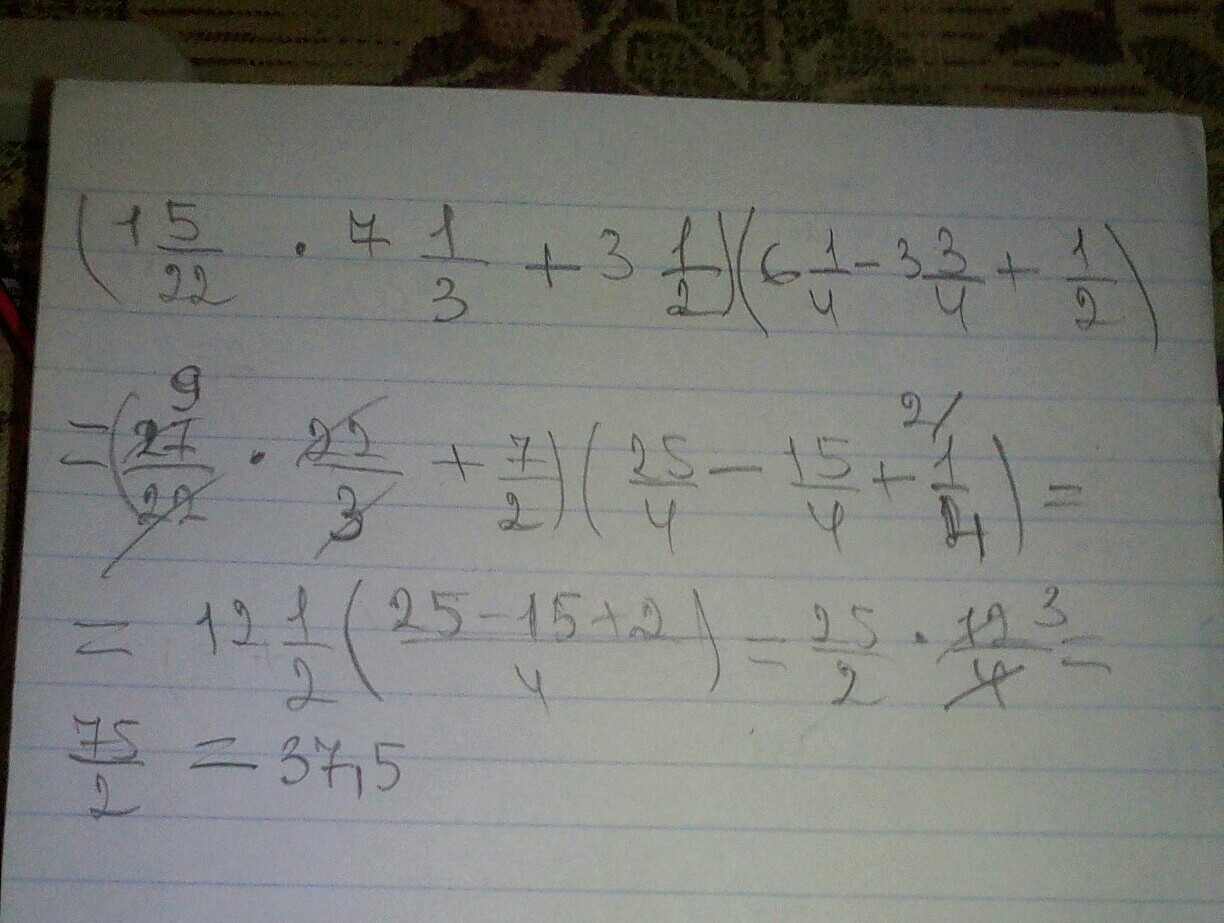 (1 5/22 · 7 1/3 + 3 1/2)(6 1/4 - 3 3/4 + 1/2)
= (27/22 · 22/3 + 7/2)(25/4 - 15/4 + 1/2) = 9 2/
= 12 1/2 (25-15+2/4) = 25/2 · 12/4 = 3
75/2 = 37,5